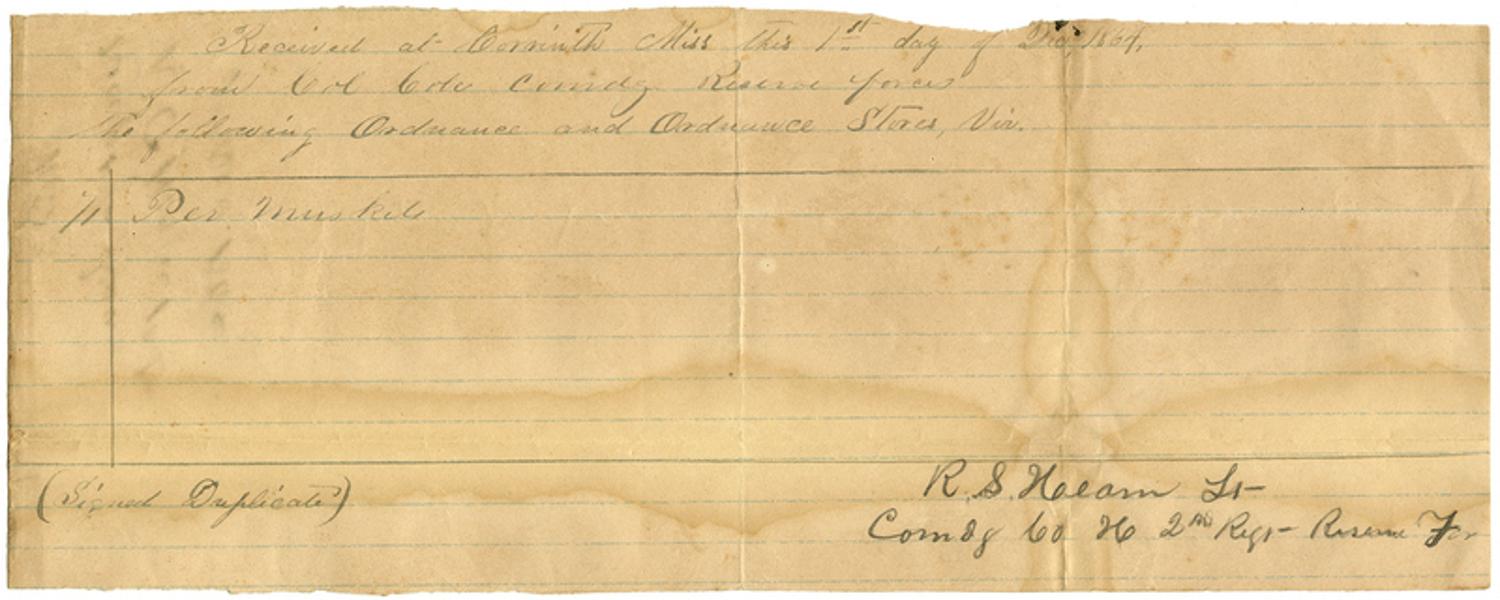 Received at Corinth Miss this 1st day of Dec, 1864,
from Col Cole Comdg Reserve forces
the following Ordnance and Ordnance Stores, Viz.
71 Per Muskets
(Signed Duplicate)
R. S. Hearn Lt
Comdg Co H 2nd Regt Reserve For